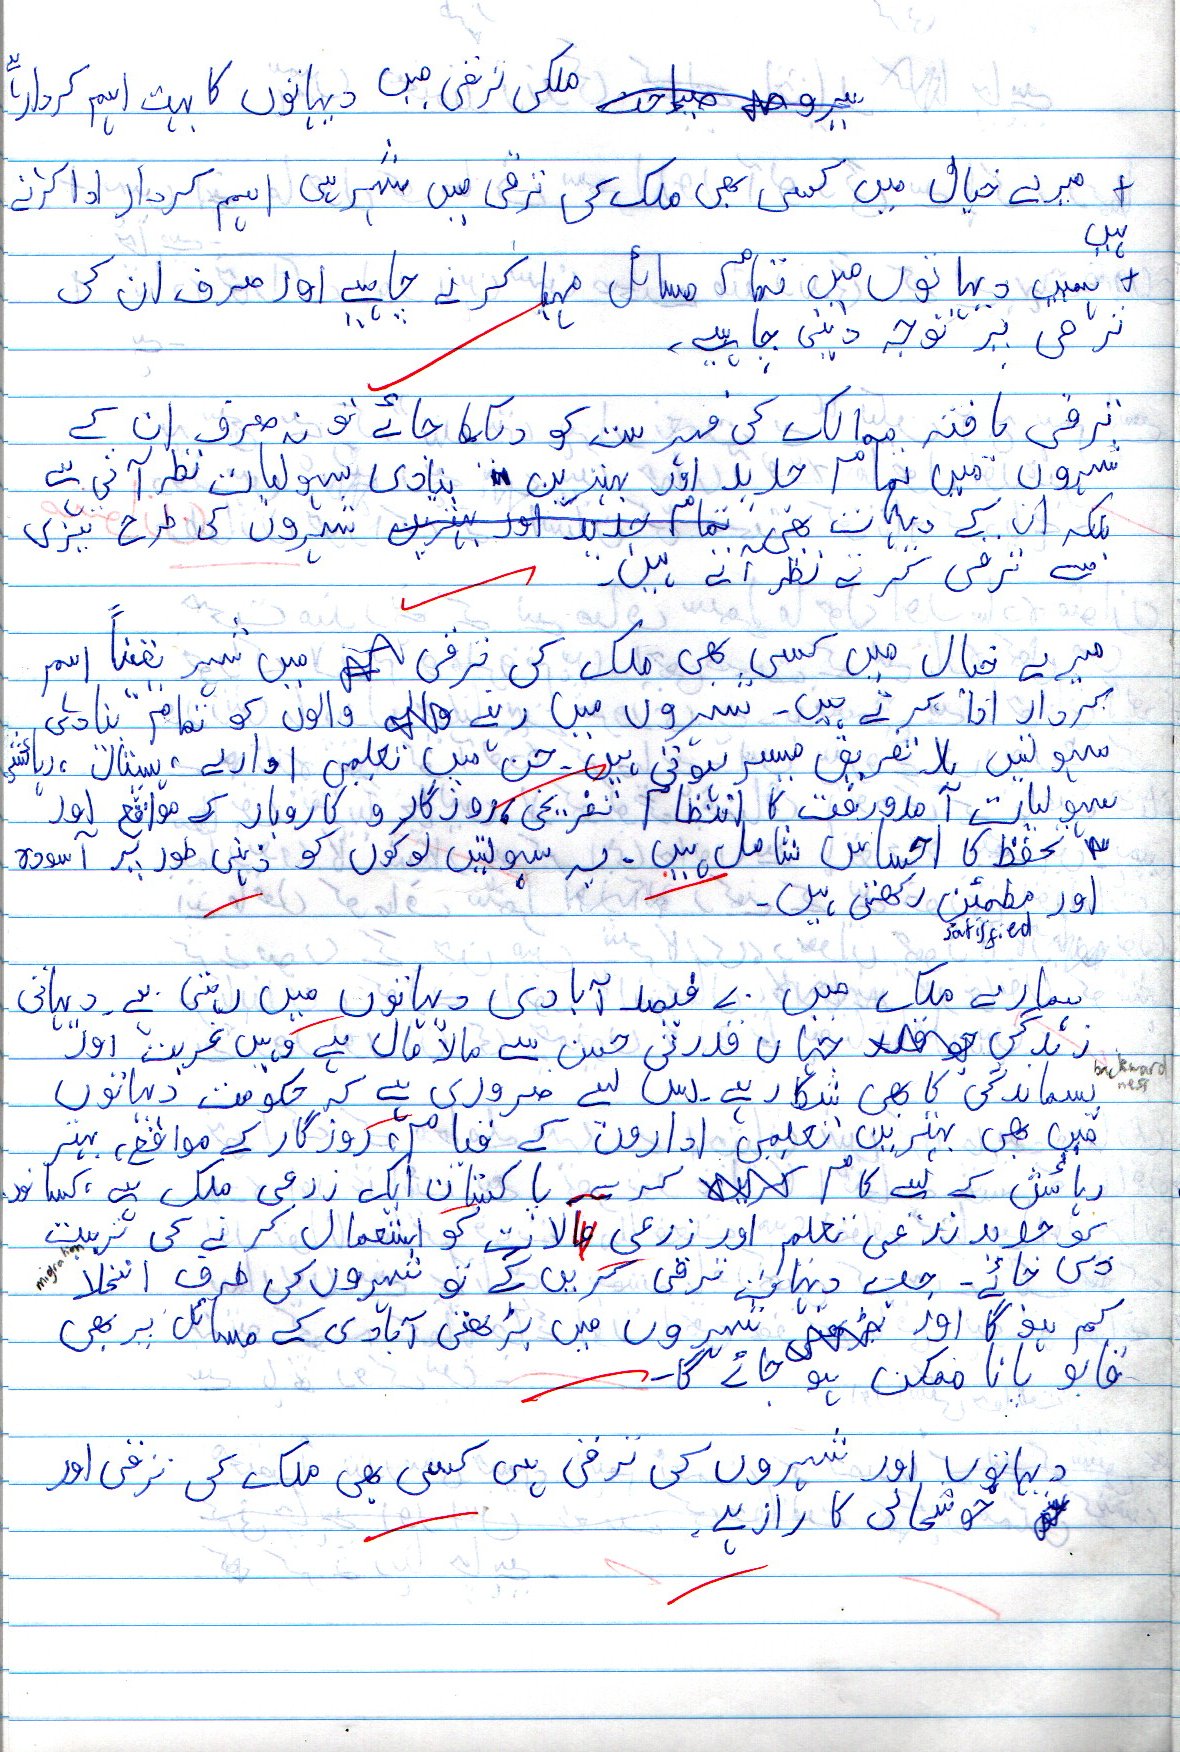 ملکی ترقی میں دیہاتوں کا بہت اہم کردار ہے
+ میرے خیال میں کسی بھی ملک کی ترقی میں شہر ہی اہم کردار ادا کرتے
ہیں
+ ہمیں دیہاتوں میں تمام مسائل مہیا کرنے چاہیے اور صرف ان کی
ترقی پر توجہ دینی چاہیے۔
ترقی یافتہ ممالک کی فہرست کو دیکھا جائے تو نہ صرف ان کے
شہروں میں تمام جدید اور بہترین بنیادی سہولیات نظر آتی ہے
بلکہ ان کے دیہات بھی شہروں کی طرح تیزی
سے ترقی کرتے نظر آتے ہیں۔
میرے خیال میں کسی بھی ملک کی ترقی میں شہر یقیناً اہم
کردار ادا کرتے ہیں۔ شہروں میں رہنے والوں کو تمام بنیادی
سہولتیں بلا تفریق میسر ہوتی ہیں۔ جن میں تعلیمی ادارے، ہسپتال، رہائشی
سہولیات آمدورفت کا انتظام تفریحی، روزگار و کاروبار کے مواقع اور
تحفظ کا احساس شامل ہیں۔ یہ سہولتیں لوگوں کو ذہنی طور پر آسودہ
اور مطمئن رکھتی ہیں۔
satisfied
ہمارے ملک میں ۷۰ فیصد آبادی دیہاتوں میں رہتی ہے۔ دیہاتی
زندگی جہاں قدرتی حسن سے مالا مال ہے وہیں غربت اور
backward
ness
پسماندگی کا بھی شکار ہے۔ اس لیے ضروری ہے کہ حکومت دیہاتوں
میں بھی بہترین تعلیمی اداروں کے قیام، روزگار کے مواقع، بہتر
رہائش کے لیے کام کرے۔ پاکستان ایک زرعی ملک ہے، کسانوں
کو جدید زرعی تعلیم اور زرعی آلات کو استعمال کرنے کی تربیت
migration
دی جائے۔ جب دیہات ترقی کریں گے تو شہروں کی طرف انخلا
کم ہو گا اور شہروں میں بڑھتی آبادی کے مسائل پر بھی
قابو پانا ممکن ہو جائے گا۔
دیہاتوں اور شہروں کی ترقی ہی کسی بھی ملک کی ترقی اور
خوشحالی کا راز ہے۔